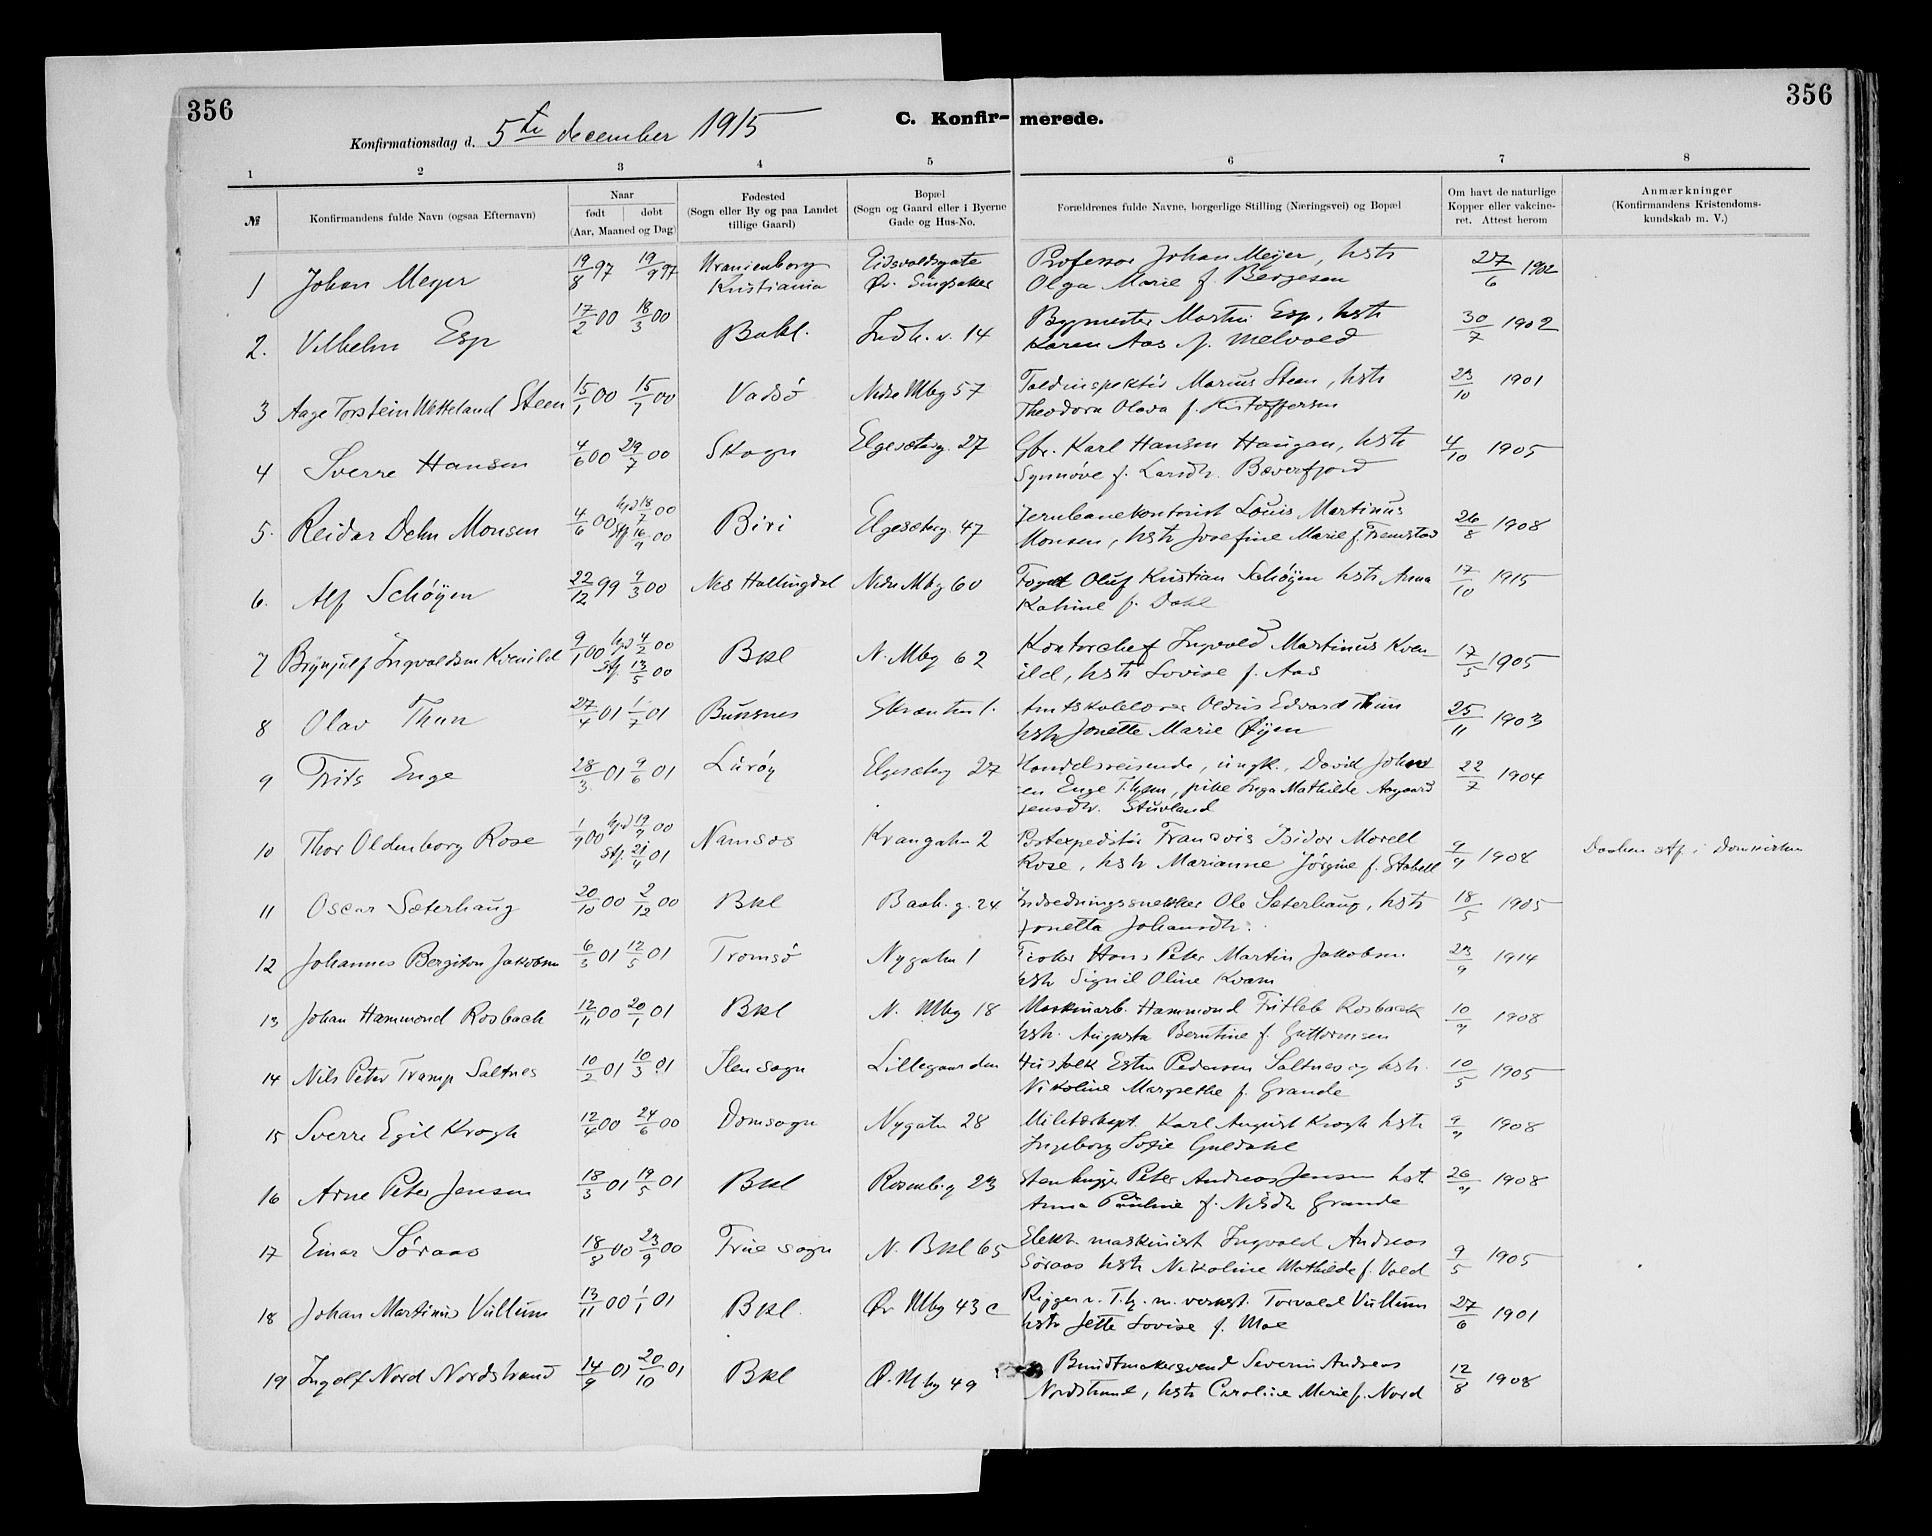 356
356
Konfirmationsdag d. 5te december 1915
C. Konfirmerede.
1 2 3 4 5 6 7 8
№
Konfirmandens fulde Navn (ogsaa Efternavn)
Naar
født døbt
(Aar, Maaned og Dag)
Fødested
(Sogn eller By og paa Landet
tillige Gaard)
Bopæl
(Sogn og Gaard eller i Byerne
Gade og Hus-No.
Forældrenes fulde Navne, borgerlige Stilling (Næringsvei) og Bopæl
Om havt de naturlige
Kopper eller vakcine-
ret. Attest herom
Anmærkninger
(Konfirmandens Kristendoms-
kundskab m. V.)
1 Johan Meyer 19/8 97 19/9 97 Uranienborg Kristiania Eidsvoldsgate Øv. Singsaker Professor Johan Meyer, hstr
Olga Marie f. Bergesen 27/6 1902
2. Vilhelm Esp 17/2 00 18/3 00 Bakl. Indh. v. 14 Bygmester Martin Esp, hstr
Karen Aas f. Melvold 30/7 1902
3 Aage Torstein Wetteland Steen 15/1 00 15/7 00 Vadsø Nedre Mbg 57 Toldinspektør Marius Steen, hstr
Theodora Olava f. Kristoffersen 23/10 1901
4 Sverre Hansen 4/6 00 29/7 00 Skogn Elgesæterg. 27 Gbr. Karl Hansen Haugan, hstr
Synnøve f. Larsdtr. Bæverfjord 4/10 1905
5. Reidar Dehn Monsen 4/6 00 hjd 18/7 00 Stf 16/9 00 Biri Elgesæterg. 47 Jernbanekontorist Louis Martinus
Monsen, hstr Josefine Marie f. Fremstad 26/8 1908
6. Alf Schöyen 22/12 99 9/3 00 Nes Hallingdal Nedre Mbg 60 Foged Oluf Kristian Schöyen hstr. Anna
Katrine f. Dahl 17/10 1915
7 Brynjulf Ingvaldsen Kvenild 9/1 00 hjd 4/2 00 Stf. 13/5 00 Bkl N. Mbg 62 Kontorchef Ingvald Martinus Kven-
ild, hstr Lovise f. Aas 17/5 1905
8 Olav Thun 27/4 01 1/7 01 Buksnes Amtskolelærer Oldus Edvard Thun
hstr Jonette Marie Øyen 25/11 1903
9 Frits Enge 28/3 01 9/6 01 Lurøy Elgesæterg 27 Handelsreisende, ungk., David Johans
en Enge T.hjem, pike Inga Mathilde Aagaard
Jensdtr. Stuvland 22/7 1904
10 Thor Oldenborg Rose 1/9 00 hjd 19/9 00 Stf. 21/4 01 Namsos Krangatn 2 Postexpeditör Francois Isidor Morell
Rose, hstr Marianne Jörgine f. Stabell 9/9 1908 Daaben stf. i Domkirken
11 Oscar Sæterhaug 20/10 00 2/12 00 Bkl Baak. g. 24 Indredningssnekker Ole Sæterhaug, hstr
Jonetta Johansdtr. 18/5 1905
12 Johannes Bergiton Jakobsen 6/3 01 12/5 01 Tromsö Nygatn 1 Hans Peter Martin Jakobsen
hstr Sigrid Oline Kvam 23/9 1914
13 Johan Hammond Rosbach 12/11 00 20/1 01 Bkl N. Mbg 18 Maskinarb. Hammond Fritleb Rosbach
hstr. Augusta Berntine f. Guttormsen 10/9 1908
14 Nils Peter Tramp Saltnes 10/2 01 10/3 01 Ilen sogn Lillegaarden Esten Pedersen Saltnes og hstr.
Nikoline Margrethe f. Grande 10/5 1905
15 Sverre Egil Krogh 12/4 00 24/6 00 Domsogn Nygatn 28 Militærkapt. Karl August Krogh hstr
Ingeborg Sofie Guldahl 9/9 1908
16 Arne Peter Jensen 18/3 01 19/5 01 Bkl Rosenb.g 23 Stenhugger Peter Andreas Jensen hst
Anna Pauline f. Nilsdtr Grande 26/9 1908
17 Einar Söraas 18/8 00 23/9 00 Frue sogn N. Bkl 65 Elektr. maskinist Ingvald Andreas
Söraas hstr Nikoline Mathilde f. Vold 9/5 1905
18 Johan Martinus Vullum 13/11 00 1/1 01 Bkl. Øv Mbg 43 c Rigger v. T.hj. m. verkst. Torvald Vullum
hstr Jette Lovise f. Moe 27/6 1901
19 Ingolf Nord Nordstrand 14/9 01 20/10 01 Bkl Ø. Mbg 49 Bundtmakersvend Severin Andreas
Nordstrand, hstr Caroline Marie f. Nord 12/8 1908